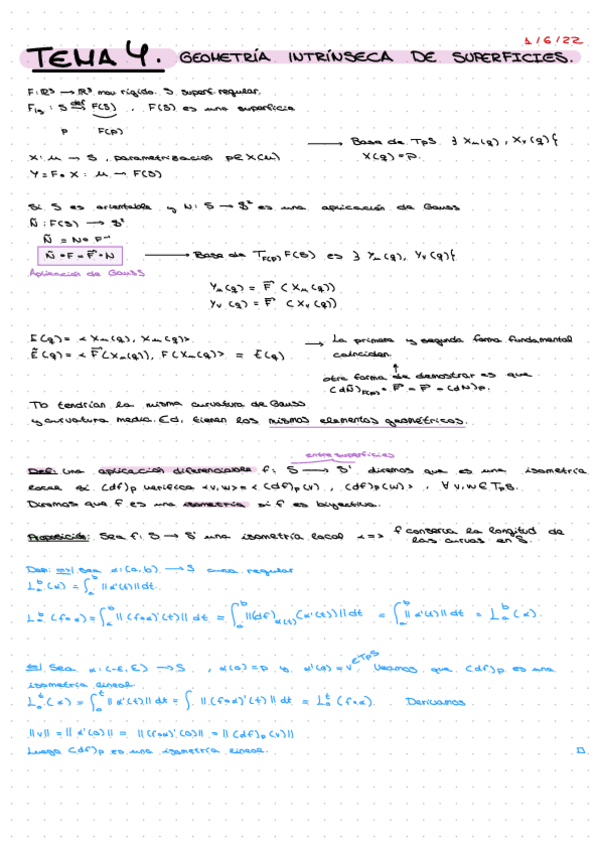 1/6/22
TEMA 4. GEOMETRÍA INTRÍNSECA DE SUPERFICIES.
F: ℝ³ → ℝ³ mov rígido. S superf. regular.
F|S : S →def F(S) , F(S) es una superficie
p F(p)
→ Base de TpS } Xu(q), Xv(q){
X: U → S , parametrización p∈X(U) X(q)=p.
Y = F∘X : U → F(S)
Si S es orientable y N: S → S² es una aplicación de Gauss
Ñ: F(S) → S²
Ñ = N∘F⁻¹
Ñ∘F = F⃗∘N → Base de T_F(p) F(S) es } Yu(q), Yv(q){
Aplicación de Gauss
Yu(q) = F⃗ (Xu(q))
Yv(q) = F⃗ (Xv(q))
E(q) = <Xu(q), Xu(q)> → La primera y segunda forma fundamental
Ẽ(q) = <F⃗(Xu(q)), F(Xu(q))> = E(q) coinciden.
otra forma de demostrar es que
(dÑ)F(p)∘F⃗ = F⃗∘(dN)p.
Tb tendrían la misma curvatura de Gauss
y curvatura media. Ed, tienen los mismos elementos geométricos.
entre superficies
Def: Una aplicación diferenciable f: S → S' diremos que es una isometría
local si (df)p verifica <v,w> = <(df)p(v), (df)p(w)> , ∀ v,w ∈ TpS.
Diremos que f es una isometría si f es biyectiva.
Proposición: Sea f: S → S' una isometría local <=> f conserva la longitud de
las curvas en S.
Dem: =>/ Sea α: (a,b) → S curva regular
L_a^b (α) = ∫_a^b ||α'(t)|| dt.
L_a^b (f∘α) = ∫_a^b ||(f∘α)'(t)|| dt = ∫_a^b ||(df)α(t) (α'(t))|| dt = ∫_a^b ||α'(t)|| dt = L_a^b (α).
<=/ Sea α: (-ε,ε) → S , α(0)=p y α'(0)=v ∈TpS Veamos que (df)p es una
isometría lineal
L_0^t (α) = ∫_0^t ||α'(t)|| dt = ∫. ||(f∘α)'(t)|| dt = L_0^t (f∘α). Derivamos
||v|| = ||α'(0)|| = ||(f∘α)'(0)|| = ||(df)p(v)||
Luego (df)p es una isometría lineal. □